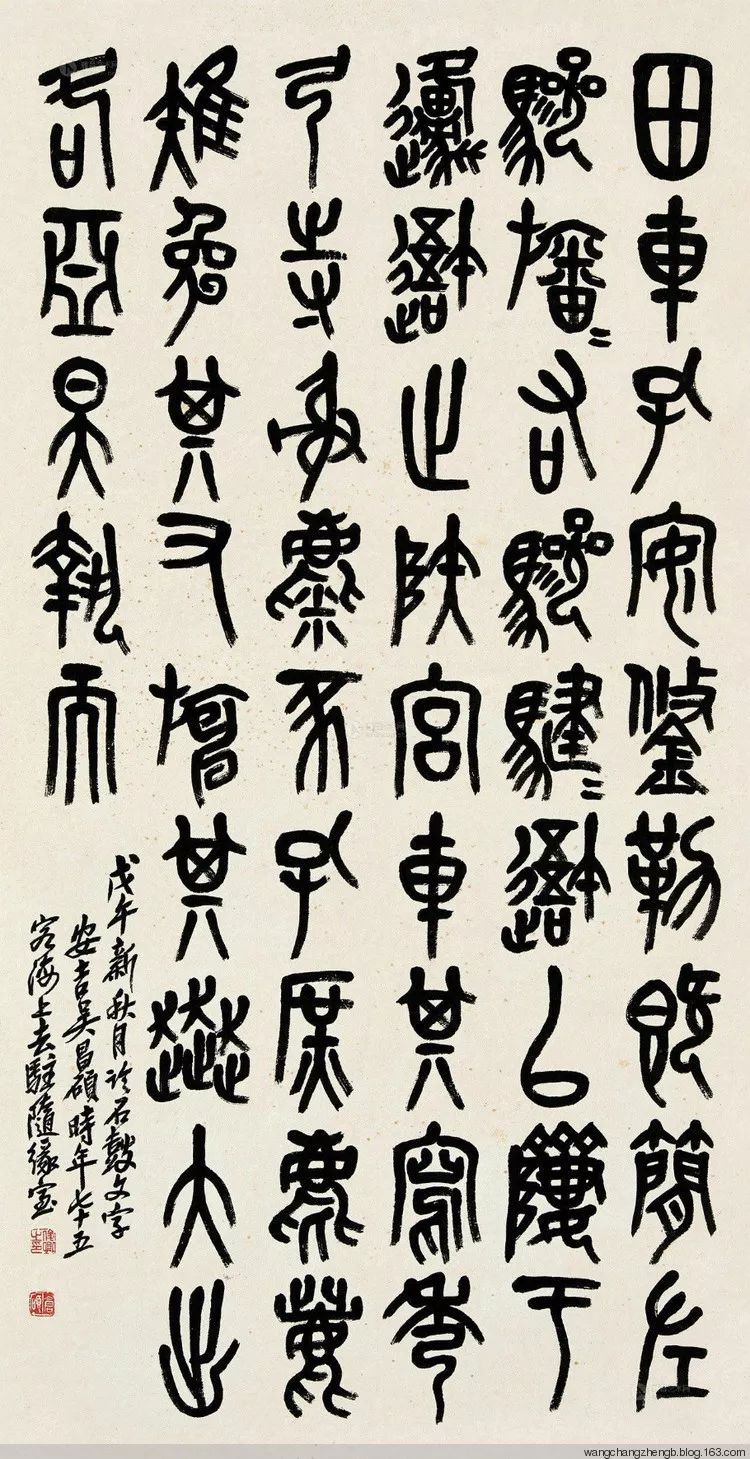 田車孔安鋚勒既簡左
驂旛=右驂騝=吾以隮于
邍吾止陝宮車其寫秀
弓寺射麋豕孔庶麀鹿
雉兔其又其奔大出
各亞昊執而
戊午新秋月臨石鼓文字
安吉吳昌碩時年七十五
客海上去駐隨緣室
wangchangzhengb.blog.163.com